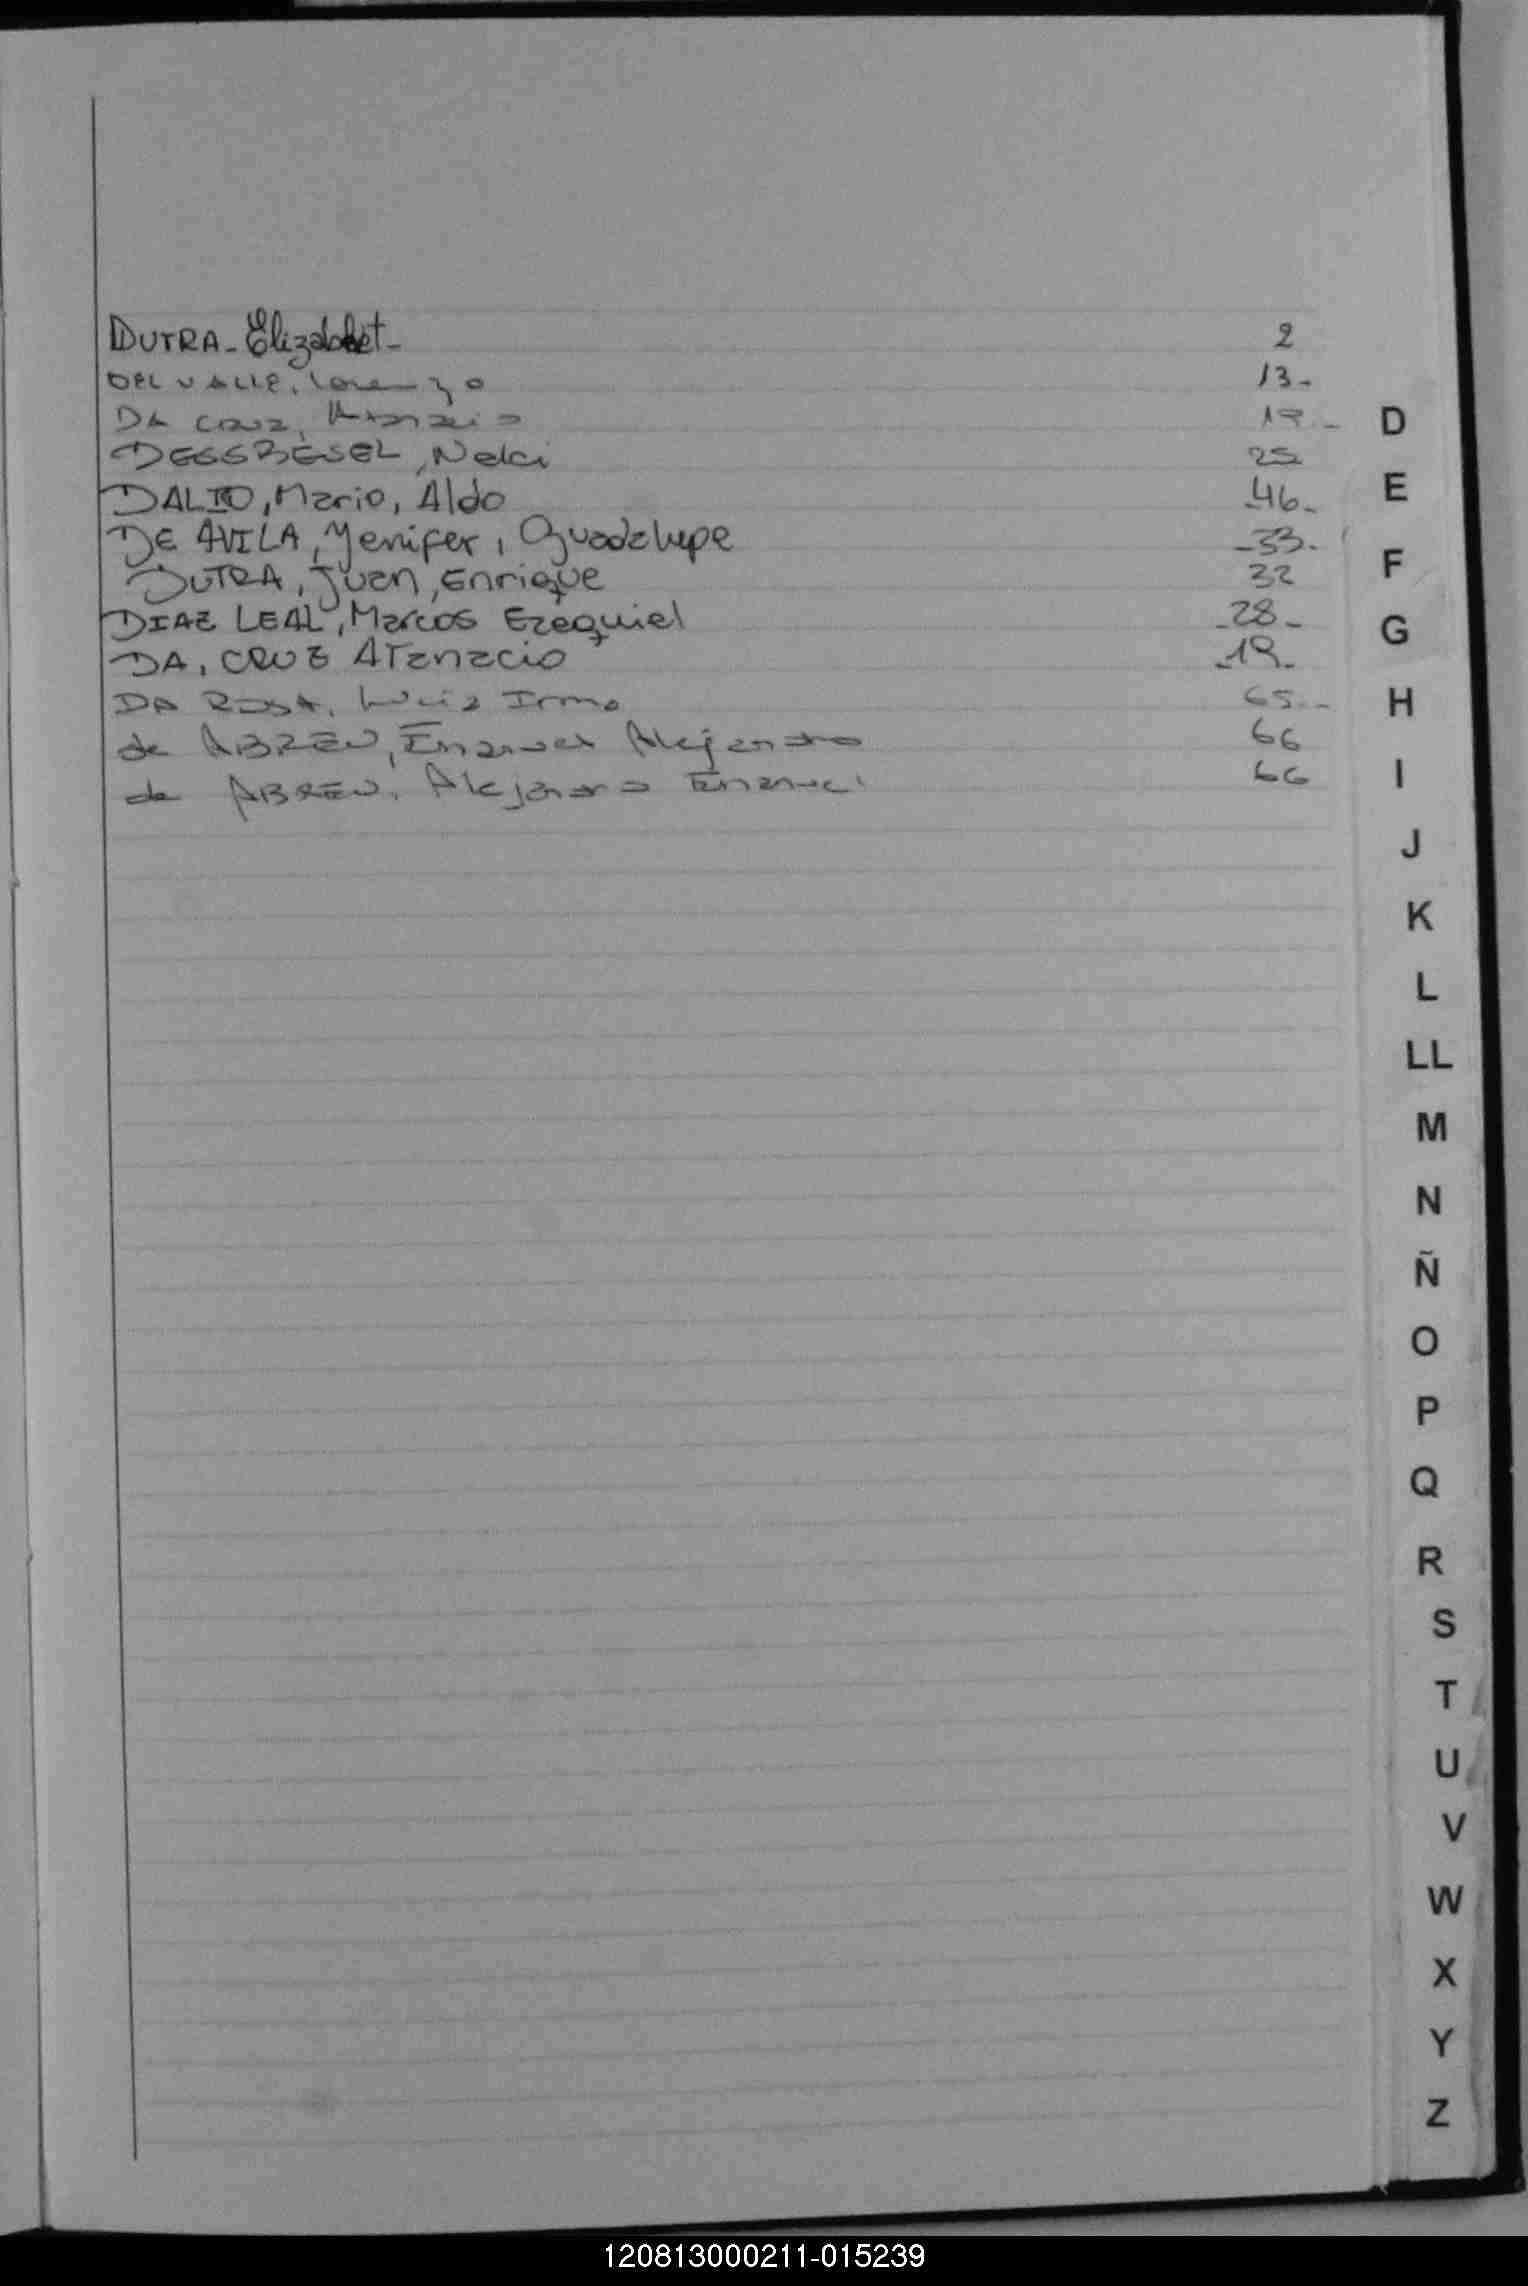 DUTRA - Elizabet - 2
DEL VALLE, Lorenzo 13-
DA CRUZ, 19.-
DESSBESEL, Nelci 25
DALIO, Mario, Aldo -46-
DE AVILA, Yenifer, Guadalupe -33-
DUTRA, Juan, Enrique 32
DIAZ LEAL, Marcos Ezequiel -28-
DA, CRUZ ATanacio -19-
DA ROSA, Luiz Irmo 65.-
de ABREU, Emanuel Alejandro 66
de ABREU, Alejandro Emanuel 66
D
E
F
G
H
I
J
K
L
LL
M
N
Ñ
O
P
Q
R
S
T
U
V
W
X
Y
Z
120813000211-015239